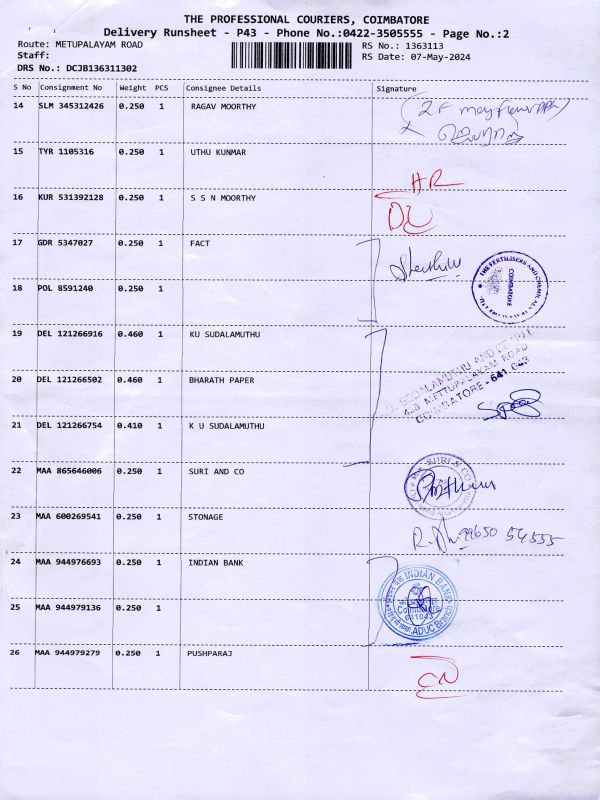 THE PROFESSIONAL COURIERS, COIMBATORE
Delivery Runsheet - P43 - Phone No.:0422-3505555 - Page No.:2
Route: METUPALAYAM ROAD RS No.: 1363113
Staff: RS Date: 07-May-2024
DRS No.: DCJB136311302
S No Consignment No Weight PCS Consignee Details Signature
14 SLM 345312426 0.250 1 RAGAV MOORTHY
15 TYR 1105316 0.250 1 UTHU KUNMAR
HR
16 KUR 531392128 0.250 1 S S N MOORTHY
17 GDR 5347027 0.250 1 FACT
THE FERTILISERS AND CHEMICALS
COIMBATORE
18 POL 8591240 0.250 1
19 DEL 121266916 0.460 1 KU SUDALAMUTHU
20 DEL 121266502 0.460 1 BHARATH PAPER
SUDALAMUTHU AND
METTUPALAYAM ROAD
COIMBATORE - 641 043
21 DEL 121266754 0.410 1 K U SUDALAMUTHU
22 MAA 865646006 0.250 1 SURI AND CO
SURI & CO
23 MAA 600269541 0.250 1 STONAGE
99650 54555
24 MAA 944976693 0.250 1 INDIAN BANK
INDIAN BANK
Coimbatore
641043
ADUC Branch
25 MAA 944979136 0.250 1
26 MAA 944979279 0.250 1 PUSHPARAJ